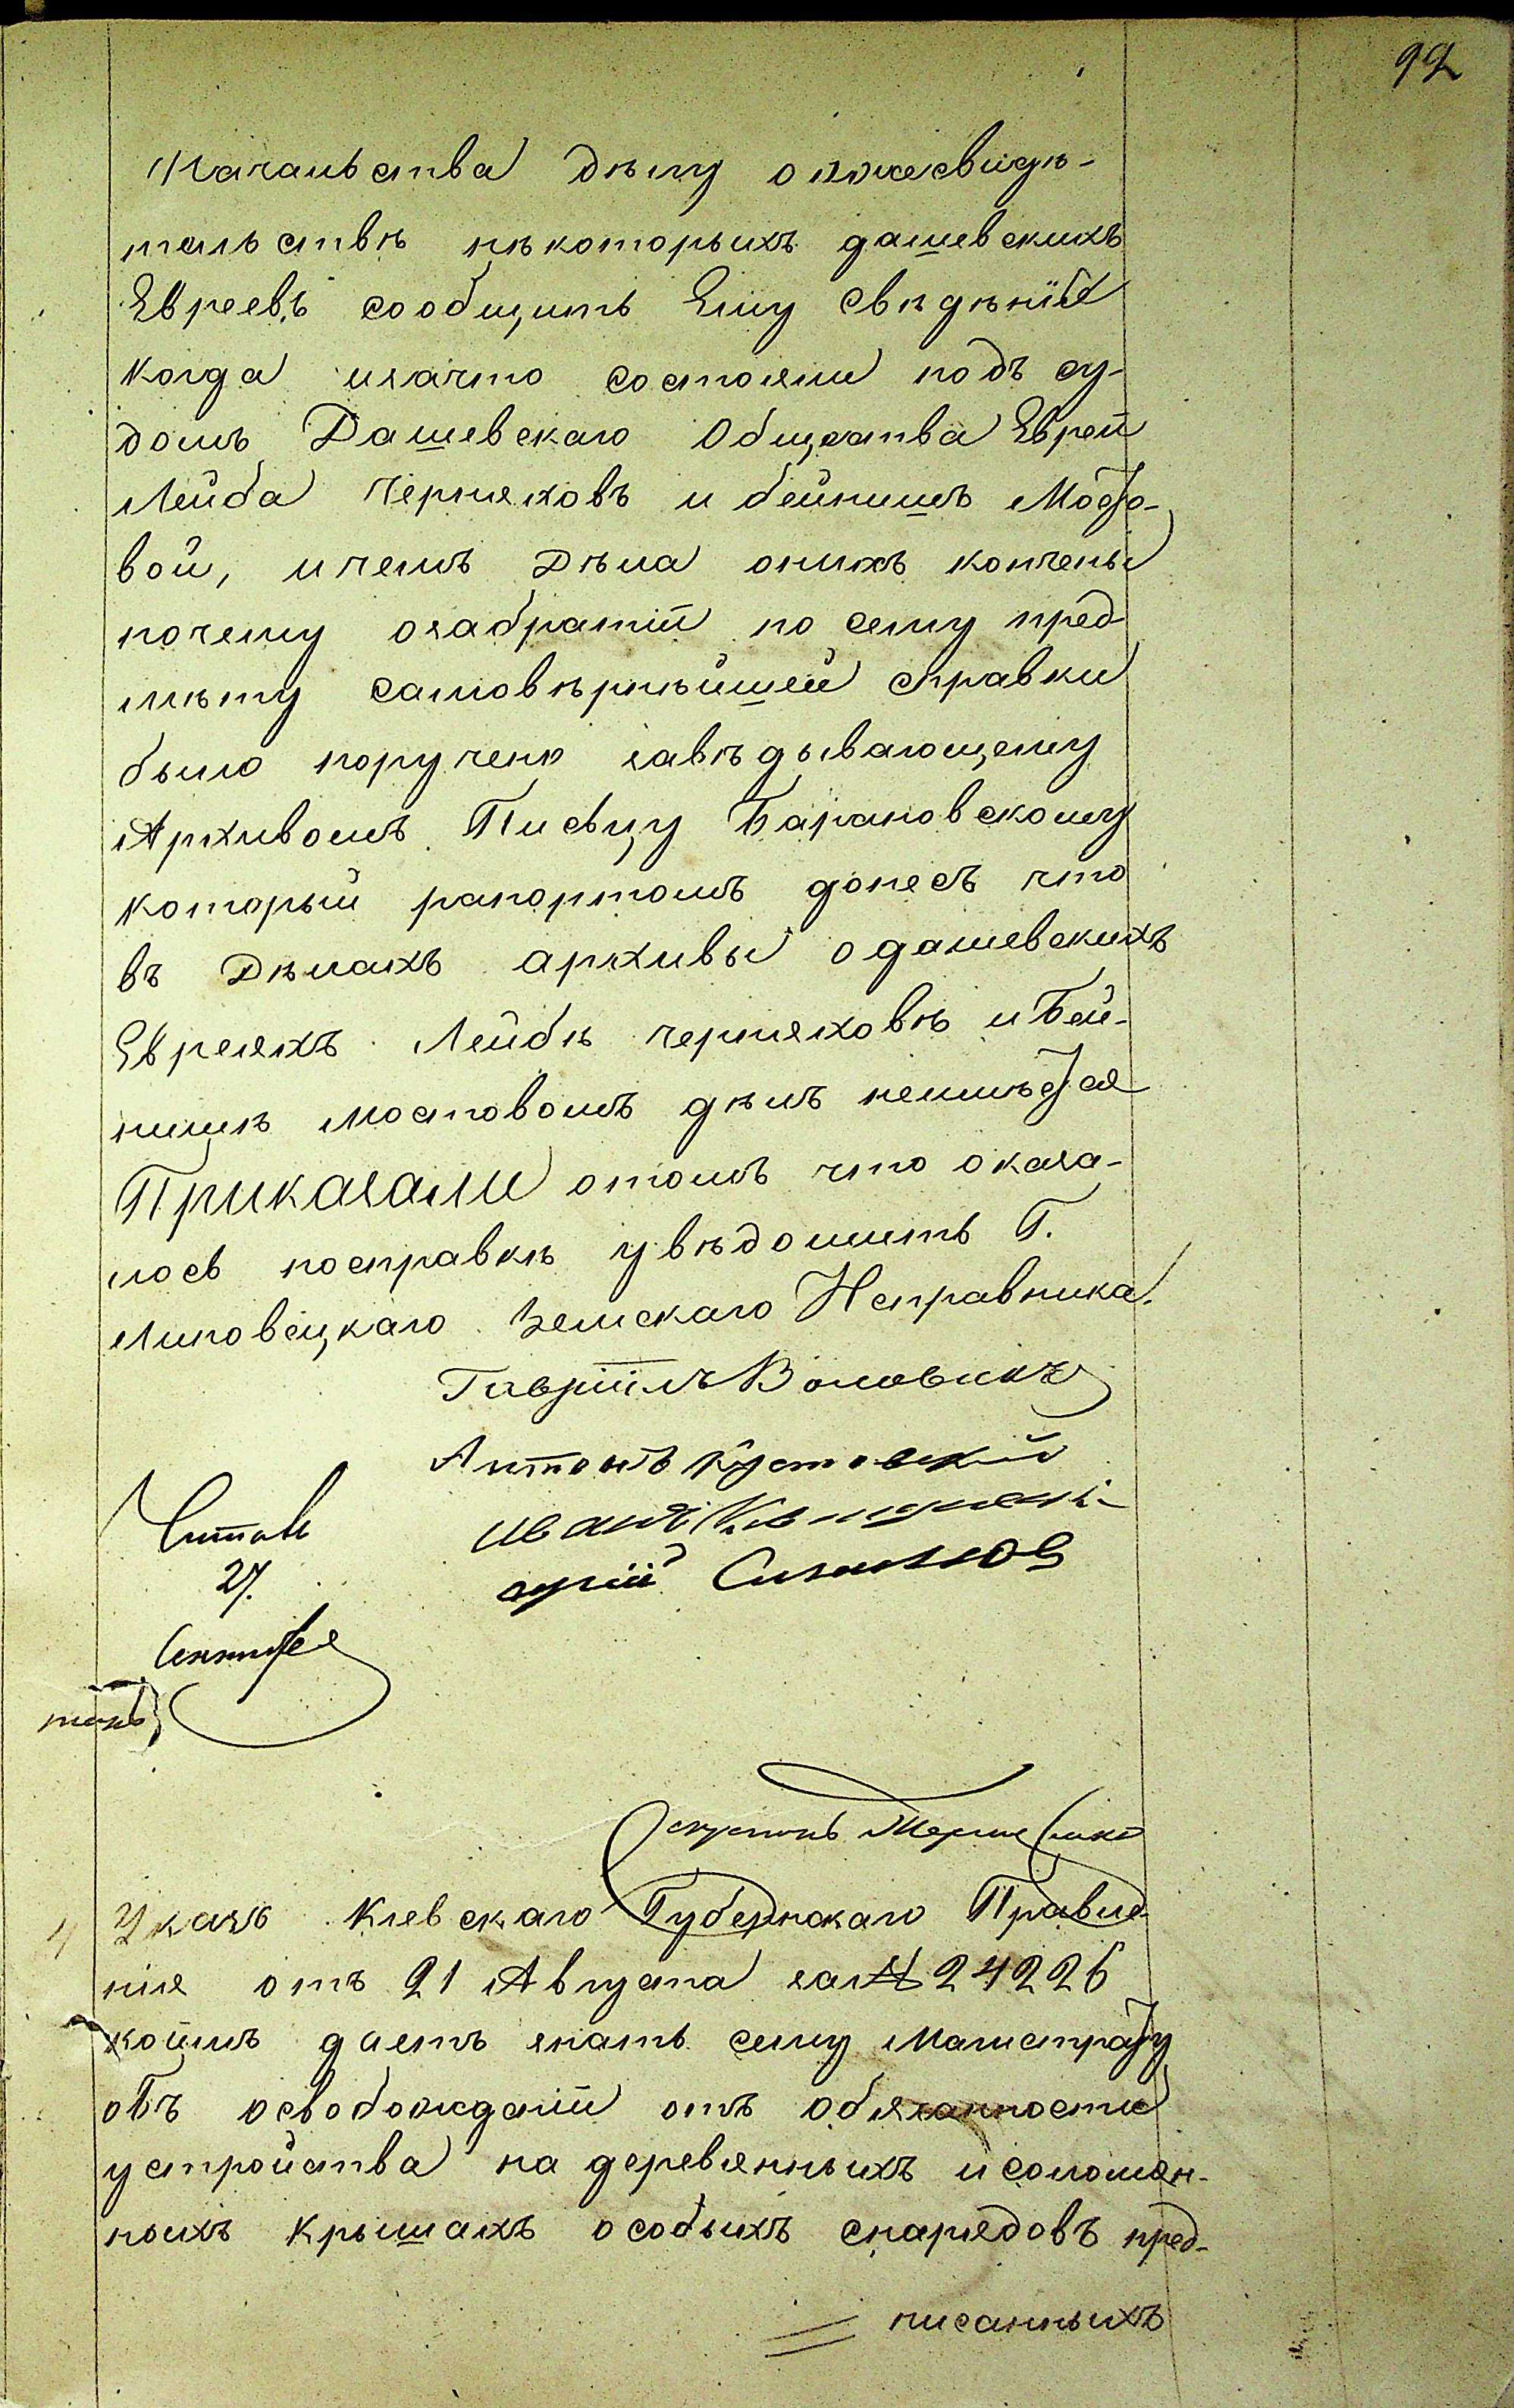 92
Начальства делу о лжесвидѣ-
тельствѣ нѣкоторыхъ дашевскихъ
Евреевъ сообщить Ему Свѣдѣнія
Когда изачто состояли подъ су-
домъ Дашевскаго Общества Евреи
Лейба Черняховъ и бейнишъ Мосто-
вой, и чемъ Дѣла онихъ кончены
почему озабратіи по сему пред-
мѣту самовѣрнѣйшей справки
было поручено завѣдывающему
Архивомъ Писцу Барановскому
который рапортомъ донесъ что
въ Дѣлахъ архивы одашевскихъ
Евреяхъ Лейбѣ черняховѣ и Бей-
нишѣ мостовомъ дѣлъ неимѣется
Приказали отомъ что оказа-
лось посправкѣ увѣдомить Г.
Липовецкаго Земскаго Исправника.
Гавріилъ Воловикъ
Антонъ Кустовскій
Иванъ
Читалъ
27.
Сентября
Указъ Кіевскаго Губернскаго Правле-
нія отъ 21 Августа за № 24226
коимъ даетъ знать сему Магистрату
объ освобожденіи отъ обязанности
устройства на деревянныхъ исоломен-
ныхъ Крышахъ особыхъ снарядовъ пред-
писанныхъ